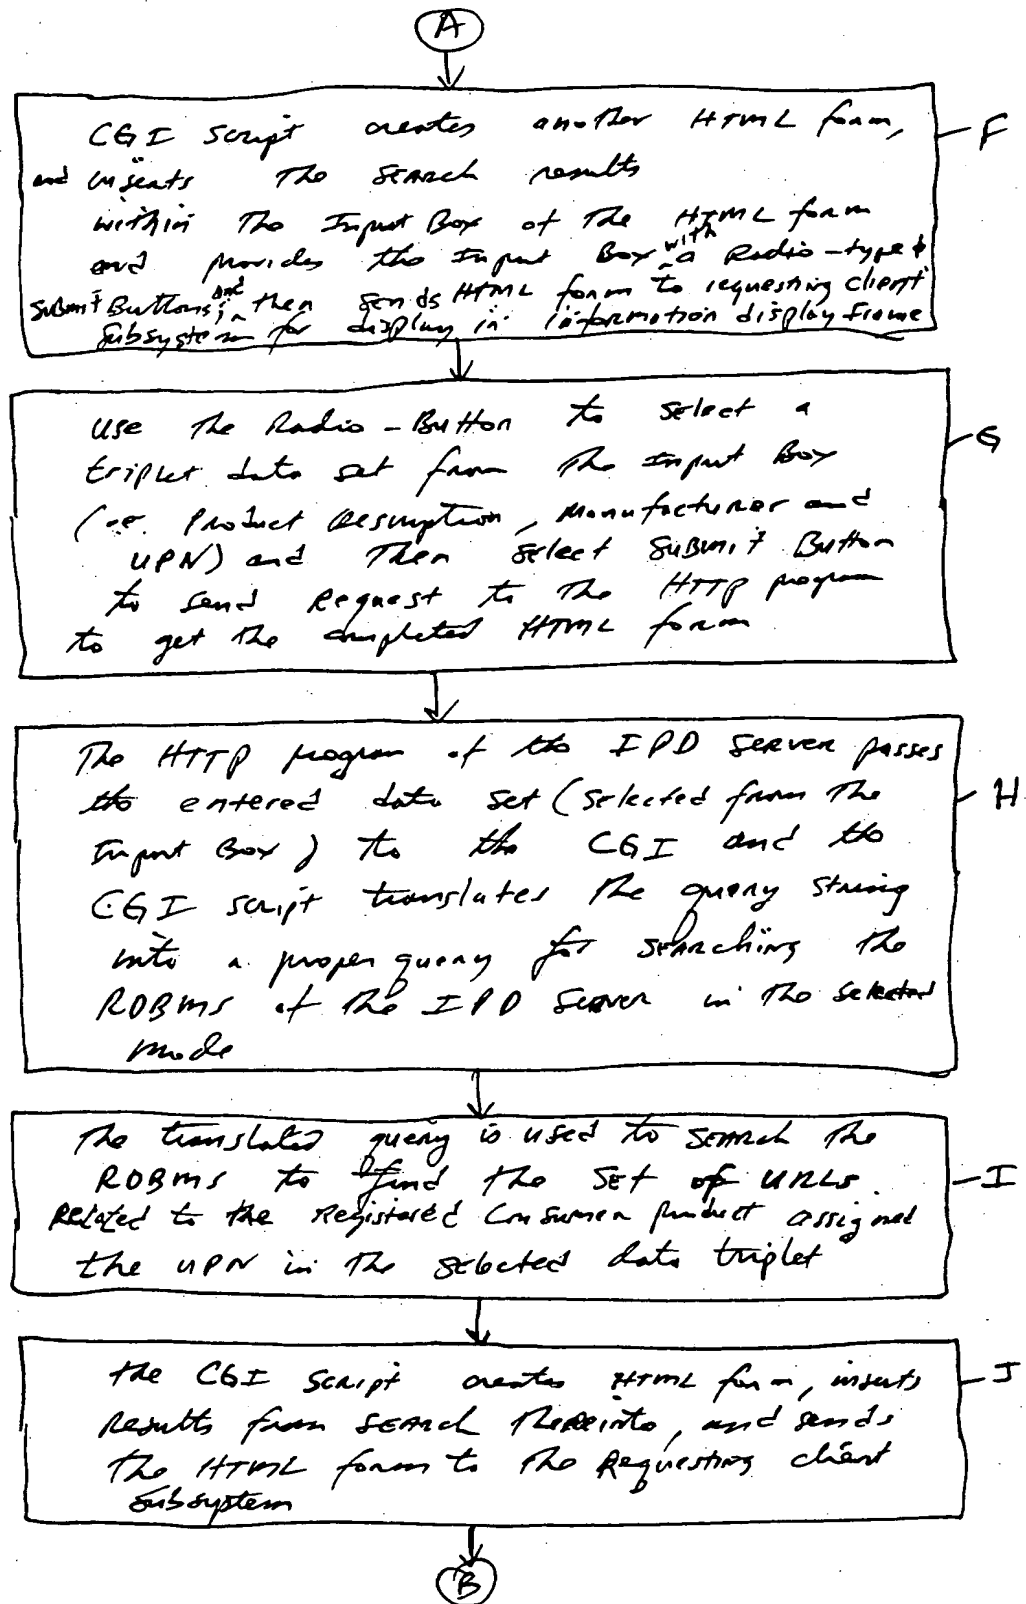 A
CGI Script creates another HTML form, F
and inserts The Search results
within The Input Box of The HTML form
and provides the Input Box with a Radio-type &
Submit Buttons; and then sends HTML form to requesting client
Subsystem for display in information display frame
use The Radio-Button to select a
triplet data set from The Input Box G
(i.e. Product Description, Manufacturer and
UPN) and Then select Submit Button
to send Request to The HTTP program
to get The completed HTML form
The HTTP program of the IPD Server passes
the entered data set (selected from The H
Input Box) to the CGI and the
CGI script translates The query string
into a proper query for searching The
RDBMS of the IPD Server in The selected
mode
The translated query is used to search The
RDBMS to find The Set of URLs I
Related to the Registered Consumer product assigned
the UPN in The selected data triplet
the CGI Script creates HTML form, inserts J
Results from search thereinto, and sends
The HTML form to The Requesting client
Subsystem
B